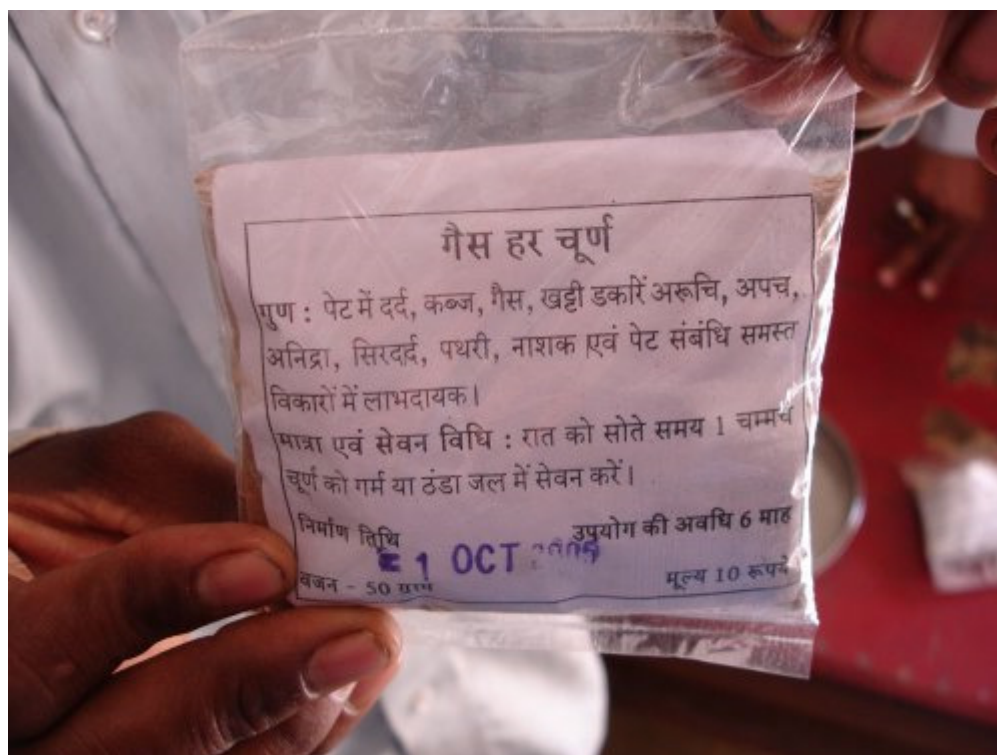 गैस हर चूर्ण
गुण : पेट में दर्द, कब्ज, गैस, खट्टी डकारें अरूचि, अपच,
अनिद्रा, सिरदर्द, पथरी, नाशक एवं पेट संबंधि समस्त
विकारों में लाभदायक।
मात्रा एवं सेवन विधि : रात को सोते समय 1 चम्मच
चूर्ण को गर्म या ठंडा जल में सेवन करें।
निर्माण तिथि उपयोग की अवधि 6 माह
1 OCT
वजन - 50 ग्राम मूल्य 10 रूपये